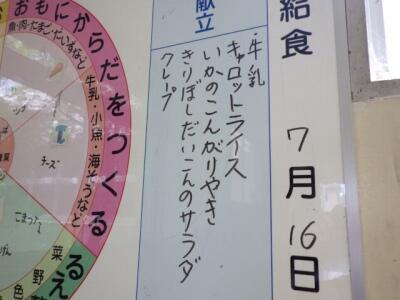 給食
7月16日
献立
・牛乳
キャロットライス
いかのこんがりやき
きりぼしだいこんのサラダ
クレープ
おもにからだをつくる
魚・肉・たまご・だいずなど
牛乳・小魚・海そうなど
チーズ
こまつな